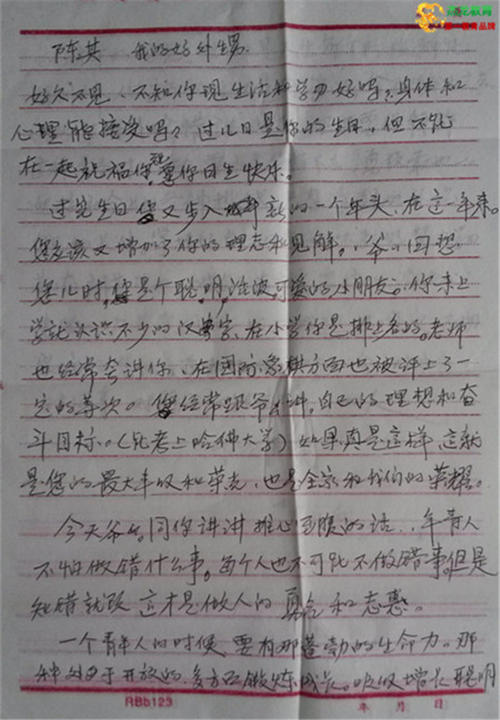 陈其 我的好外甥
好久不见、不知你现生活和学习好吗？身体和
心理能接受吗？过几日是你的生日，但不能
在一起祝福你，祝您日生快乐。
过完生日您又步入新的一个年头，在这一年来。
您应该又增加了你的理志和见解。爷爷回想
您儿时，您是个聪明活波可爱的小朋友。你未上
学就认识不少的汉字，在小学你是排上名的。老师
也经常夸讲你、在国际象棋方面也被评上了一
定的等次。您经常跟爷爷讲，自己的理想和奋
斗目标。（能考上哈佛大学）如果真是这样，这就
是您的最大丰収和荣光，也是全家和我们的荣耀。
今天爷爷同你讲讲推心至腹的话、年青人
不怕做错什么事。每个人也不可能不做错事。但是
知错就改 这才是做人的真金和志惠。
一个青年人的时候，要有那蓬勃的生命力。那
开放的、多方面锻炼成长。吸收增长聪明
RBb123
年 月 日